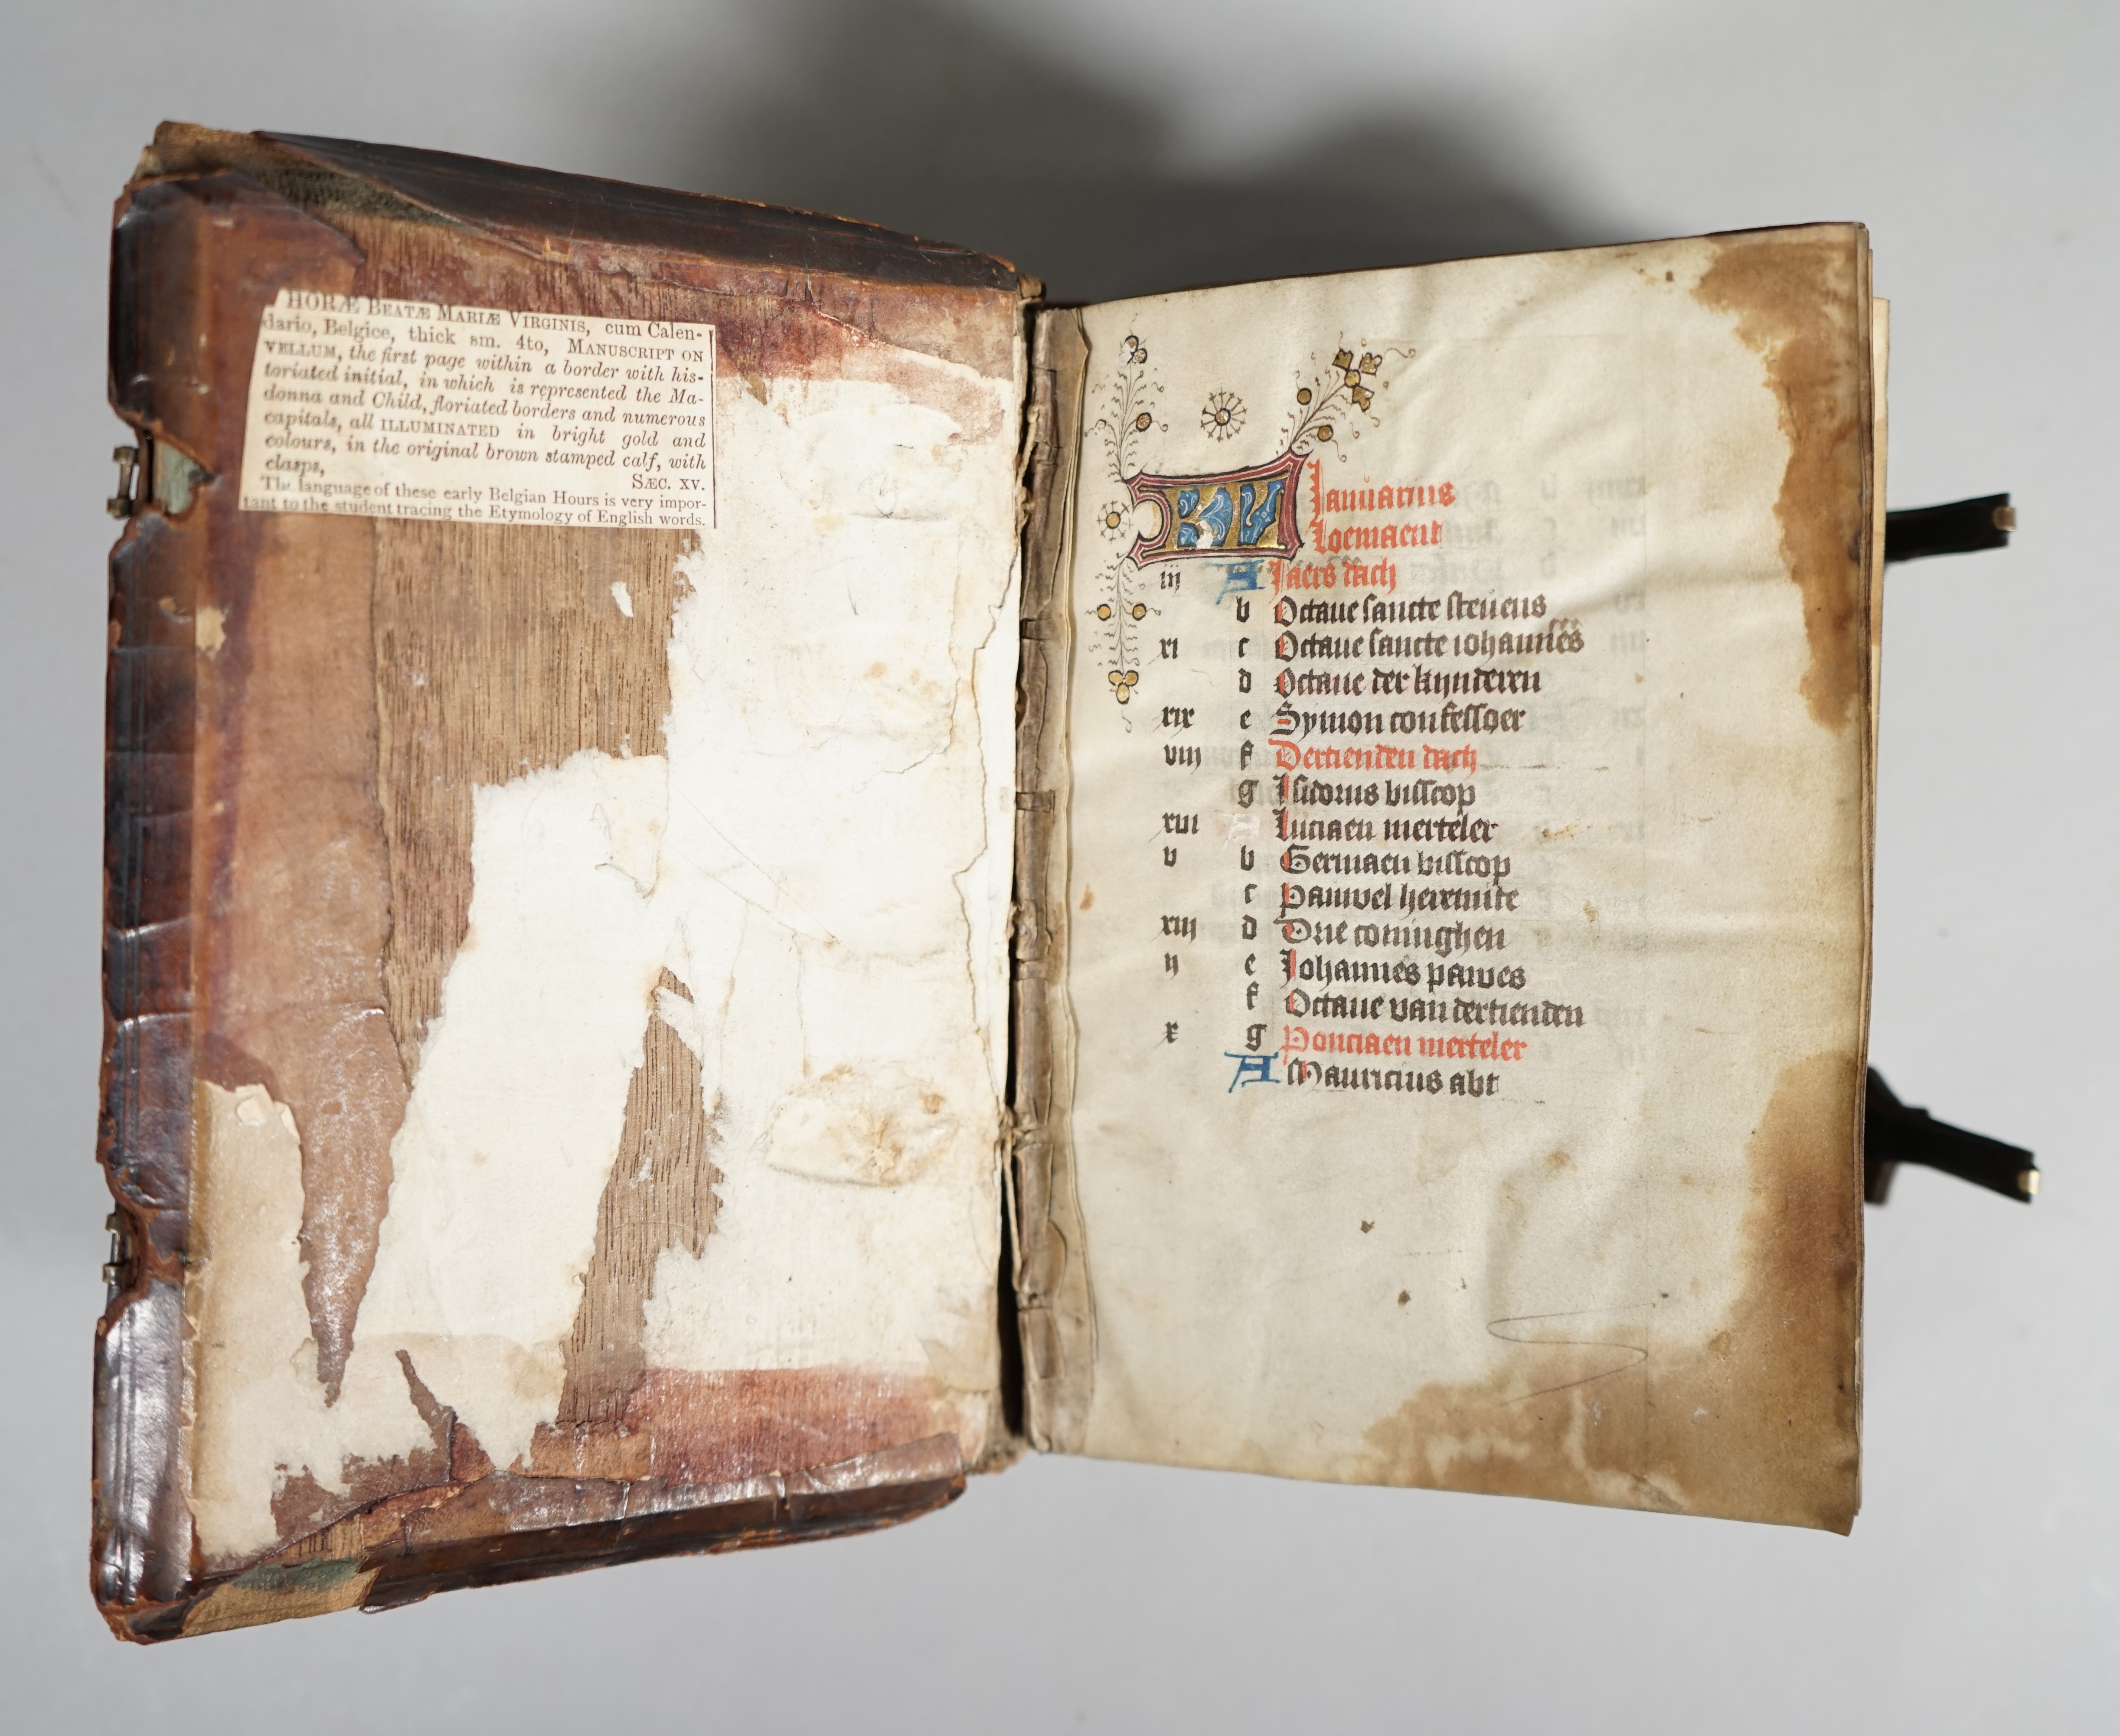 HORÆ BEATÆ MARIÆ VIRGINIS, cum Calen-
dario, Belgice, thick sm. 4to, MANUSCRIPT ON
VELLUM, the first page within a border with his-
toriated initial, in which is represented the Ma-
donna and Child, floriated borders and numerous
capitals, all ILLUMINATED in bright gold and
colours, in the original brown stamped calf, with
clasps, SÆC. XV.
The language of these early Belgian Hours is very impor-
tant to the student tracing the Etymology of English words.
KL Januarius
Loemaent
iij A Jaers dach
b Octaue sancte steuens
xi c Octaue sancte iohannes
d Octaue der kynderen
xix e Symon confessoer
viij f Dertienden dach
g Isidorus bisscop
xvi A Luciaen merteler
v b Germaen bisscop
c Pauwel heremite
xiij d Drie coninghen
ij e Johannes pawes
f Octaue van dertienden
x g Ponciaen merteler
A Mauricius abt